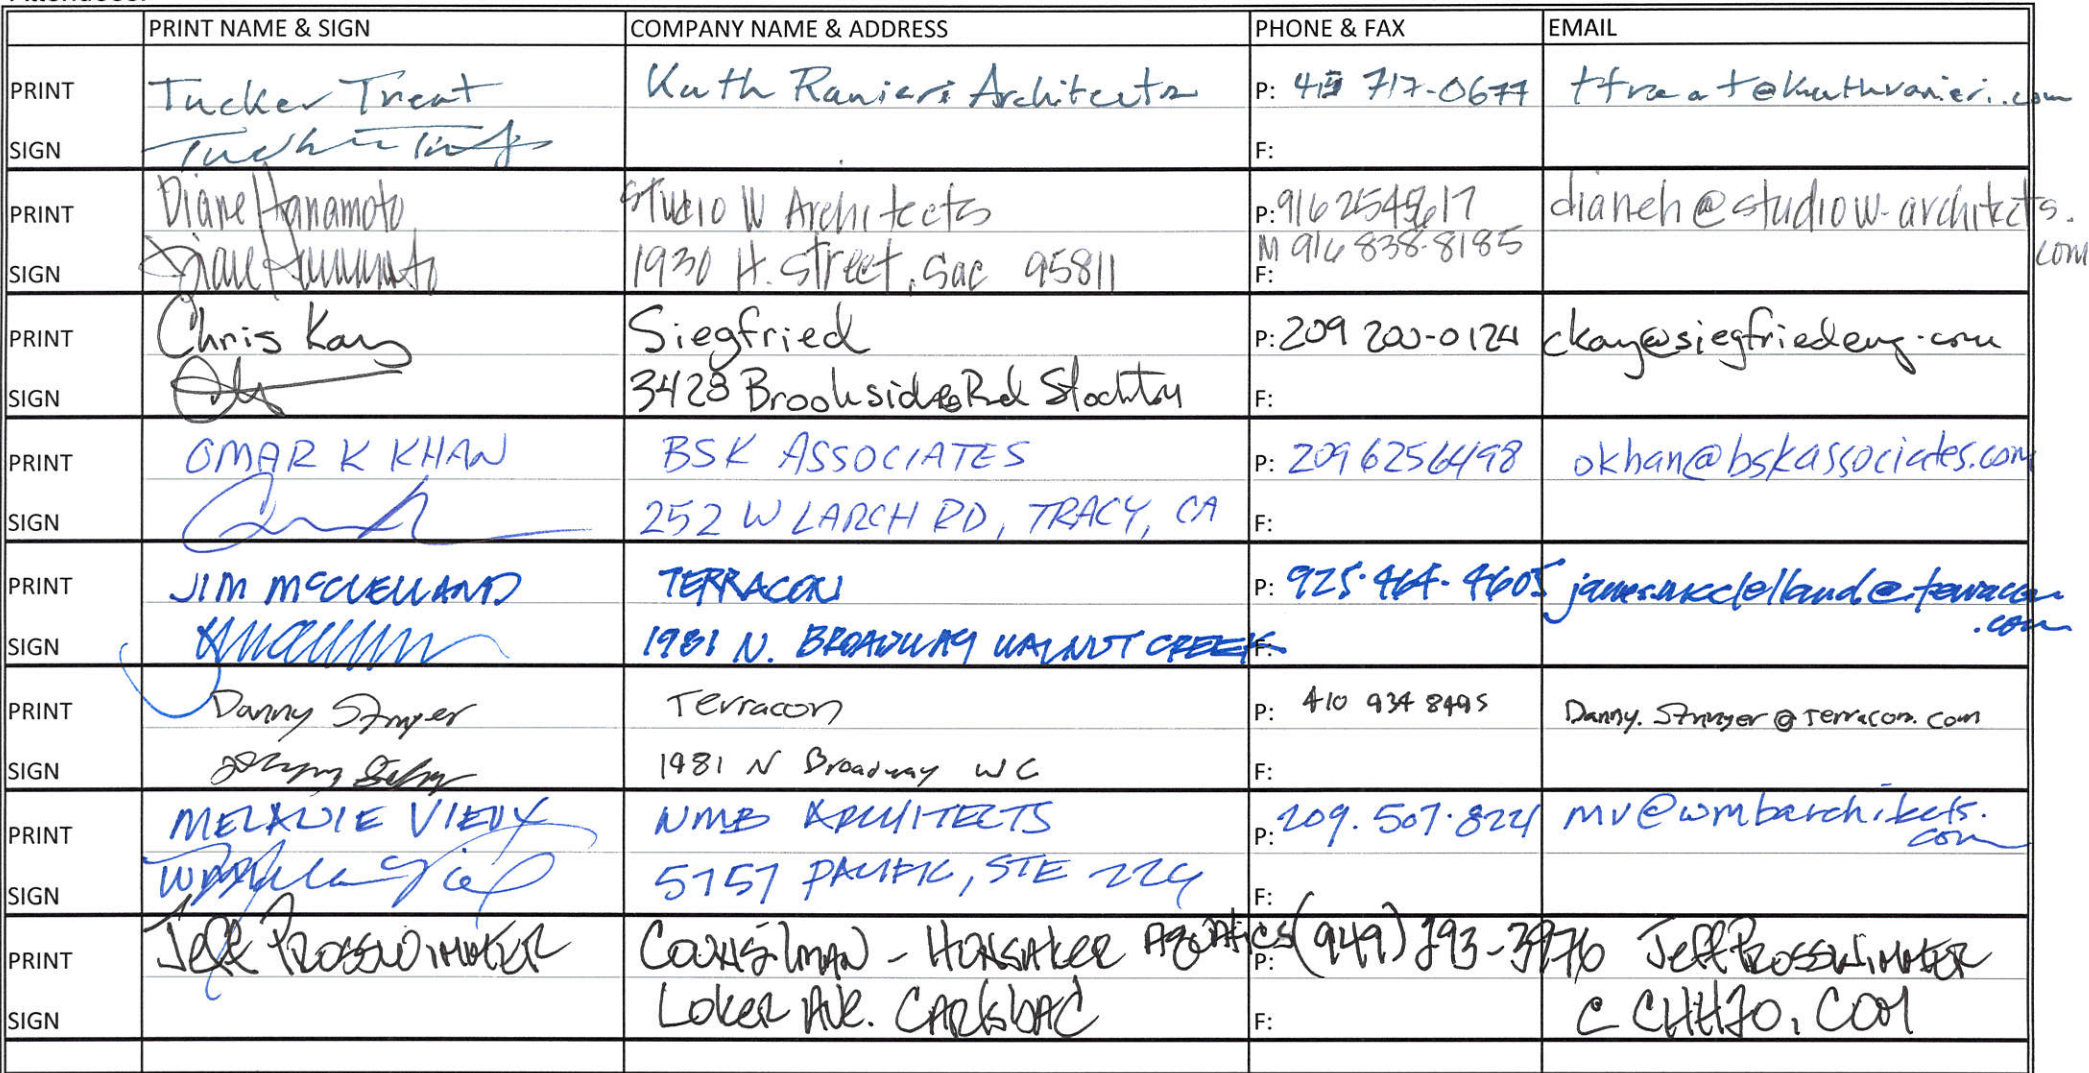 PRINT NAME & SIGN COMPANY NAME & ADDRESS PHONE & FAX EMAIL
PRINT Tucker Treat Kuth Ranieri Architects P: 415 717-0677 ttreat@kuthranieri.com
SIGN Tucker Treat F:
PRINT Diane Hanamoto Studio W Architects P: 916 254 5617 dianeh@studiow-architects.
M 916 838-8185 com
SIGN Diane Hanamoto 1930 H. Street, Sac 95811 F:
PRINT Chris Kay Siegfried P: 209 200-0124 ckay@siegfriedeng.com
SIGN 3428 Brookside Rd Stockton F:
PRINT OMAR K KHAN BSK ASSOCIATES P: 209 6256498 okhan@bskassociates.com
SIGN 252 W LARCH RD, TRACY, CA F:
PRINT JIM MCCLELLAND TERRACON P: 925.464.4605 james.mcclelland@terracon
.com
SIGN 1981 N. BROADWAY WALNUT CREEK F:
PRINT Danny Stringer Terracon P: 410 934 8495 Danny.Stringer@Terracon.com
SIGN 1981 N Broadway WC F:
PRINT MELANIE VIEUX WMB ARCHITECTS P: 209.507.8221 mv@wmbarchitects.
com
SIGN 5757 PACIFIC, STE 226 F:
PRINT Jeff PROSSWIMMER COUNSILMAN - HUNSAKER AQUATICS P: (949) 293-3976 JeffPROSSWIMMER
SIGN LOKER AVE. CARLSBAD F: @ CHH2O.COM